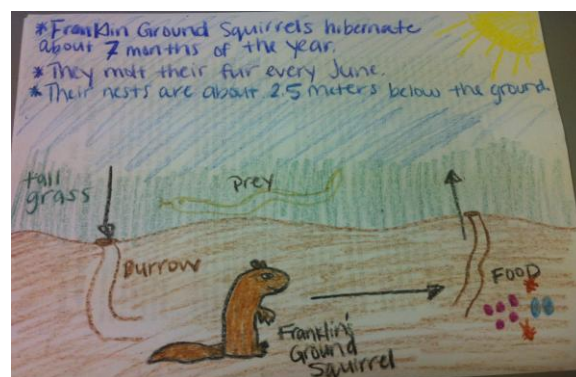 *Franklin Ground Squirrels hibernate
about 7 months of the year.
*They molt their fur every June.
*Their nests are about 2.5 meters below the ground.
tall
grass
prey
Burrow
FOOD
Franklin's
Ground
Squirrel